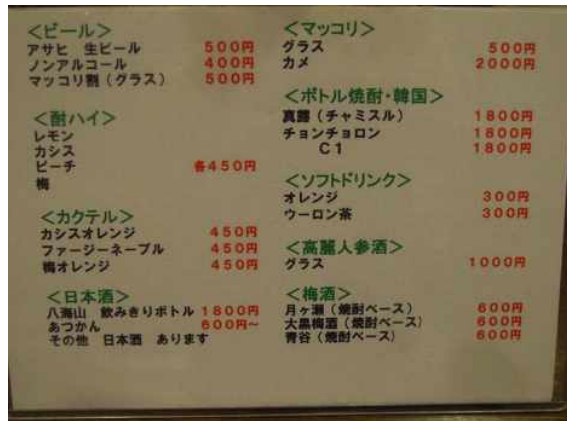 <ビール>
アサヒ 生ビール 500円
ノンアルコール 400円
マッコリ割(グラス) 500円
<酎ハイ>
レモン
カシス
ピーチ 各450円
梅
<カクテル>
カシスオレンジ 450円
ファージーネーブル 450円
梅オレンジ 450円
<日本酒>
八海山 飲みきりボトル 1800円
あつかん 600円~
その他 日本酒 あります
<マッコリ>
グラス 500円
カメ 2000円
<ボトル焼酎・韓国>
真露(チャミスル) 1800円
チョンチョロン 1800円
C1 1800円
<ソフトドリンク>
オレンジ 300円
ウーロン茶 300円
<高麗人参酒>
グラス 1000円
<梅酒>
月ヶ瀬(焼酎ベース) 600円
大黒梅酒(焼酎ベース) 600円
青谷(焼酎ベース) 600円